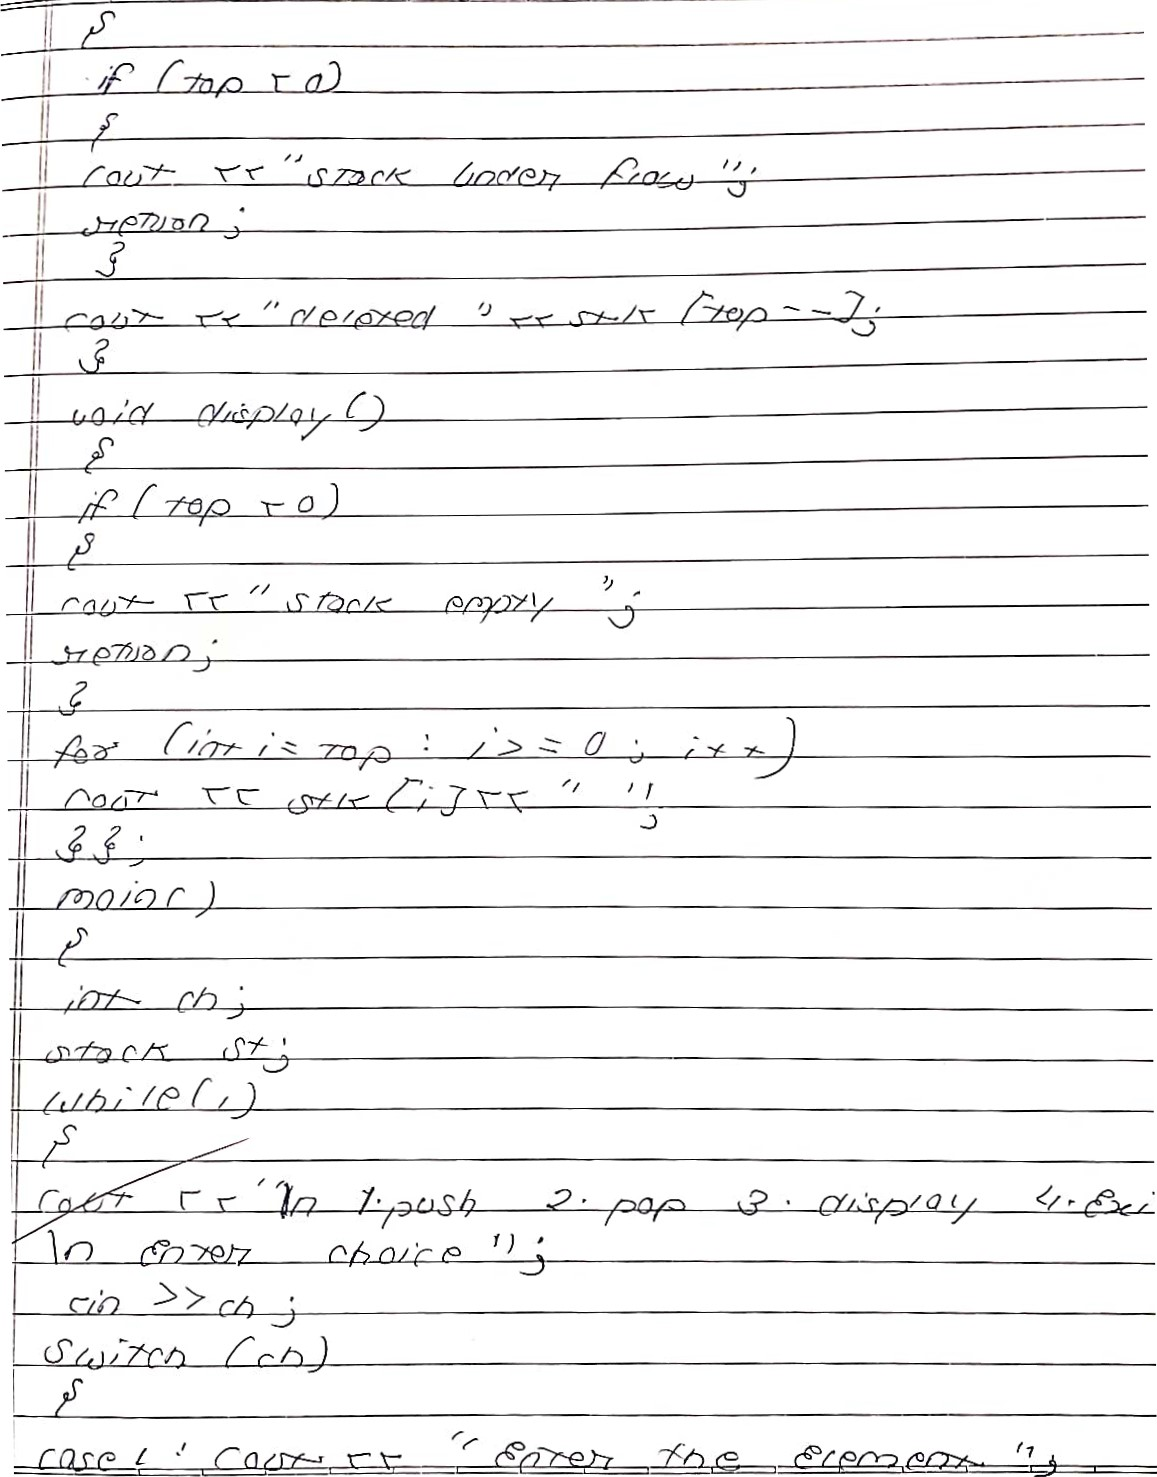 {
if (top < 0)
{
cout << "stack under flow";
return;
}
cout << "deleted " << stk [top--];
}
void display()
{
if (top < 0)
{
cout << " stack empty ";
return;
}
for (int i = top : i >= 0 ; i++)
cout << stk [i] << " ";
}};
main()
{
int ch;
stack st;
while(1)
{
cout << "\n 1.push 2. pop 3. display 4. Exi
\n enter choice ";
cin >> ch;
switch (ch)
{
case 1 : cout << " Enter the element ";